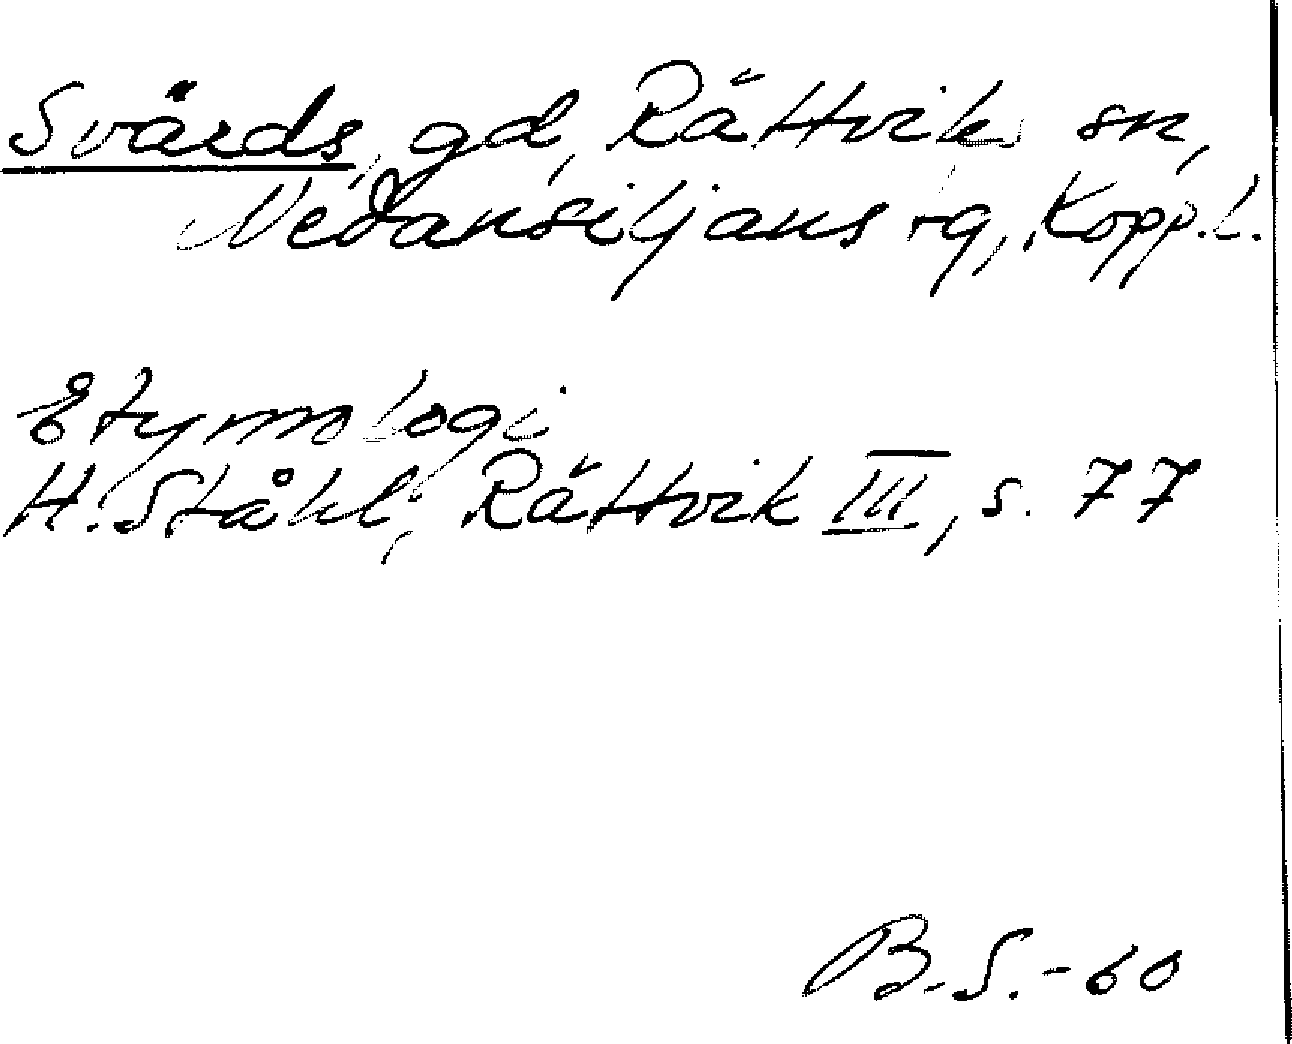 Svärds, gd, Rättviks sn,
Nedansiljans tg, Kopp.l.
Etymologi
H. Ståhl, Rättvik III, s. 77
B.S.-60